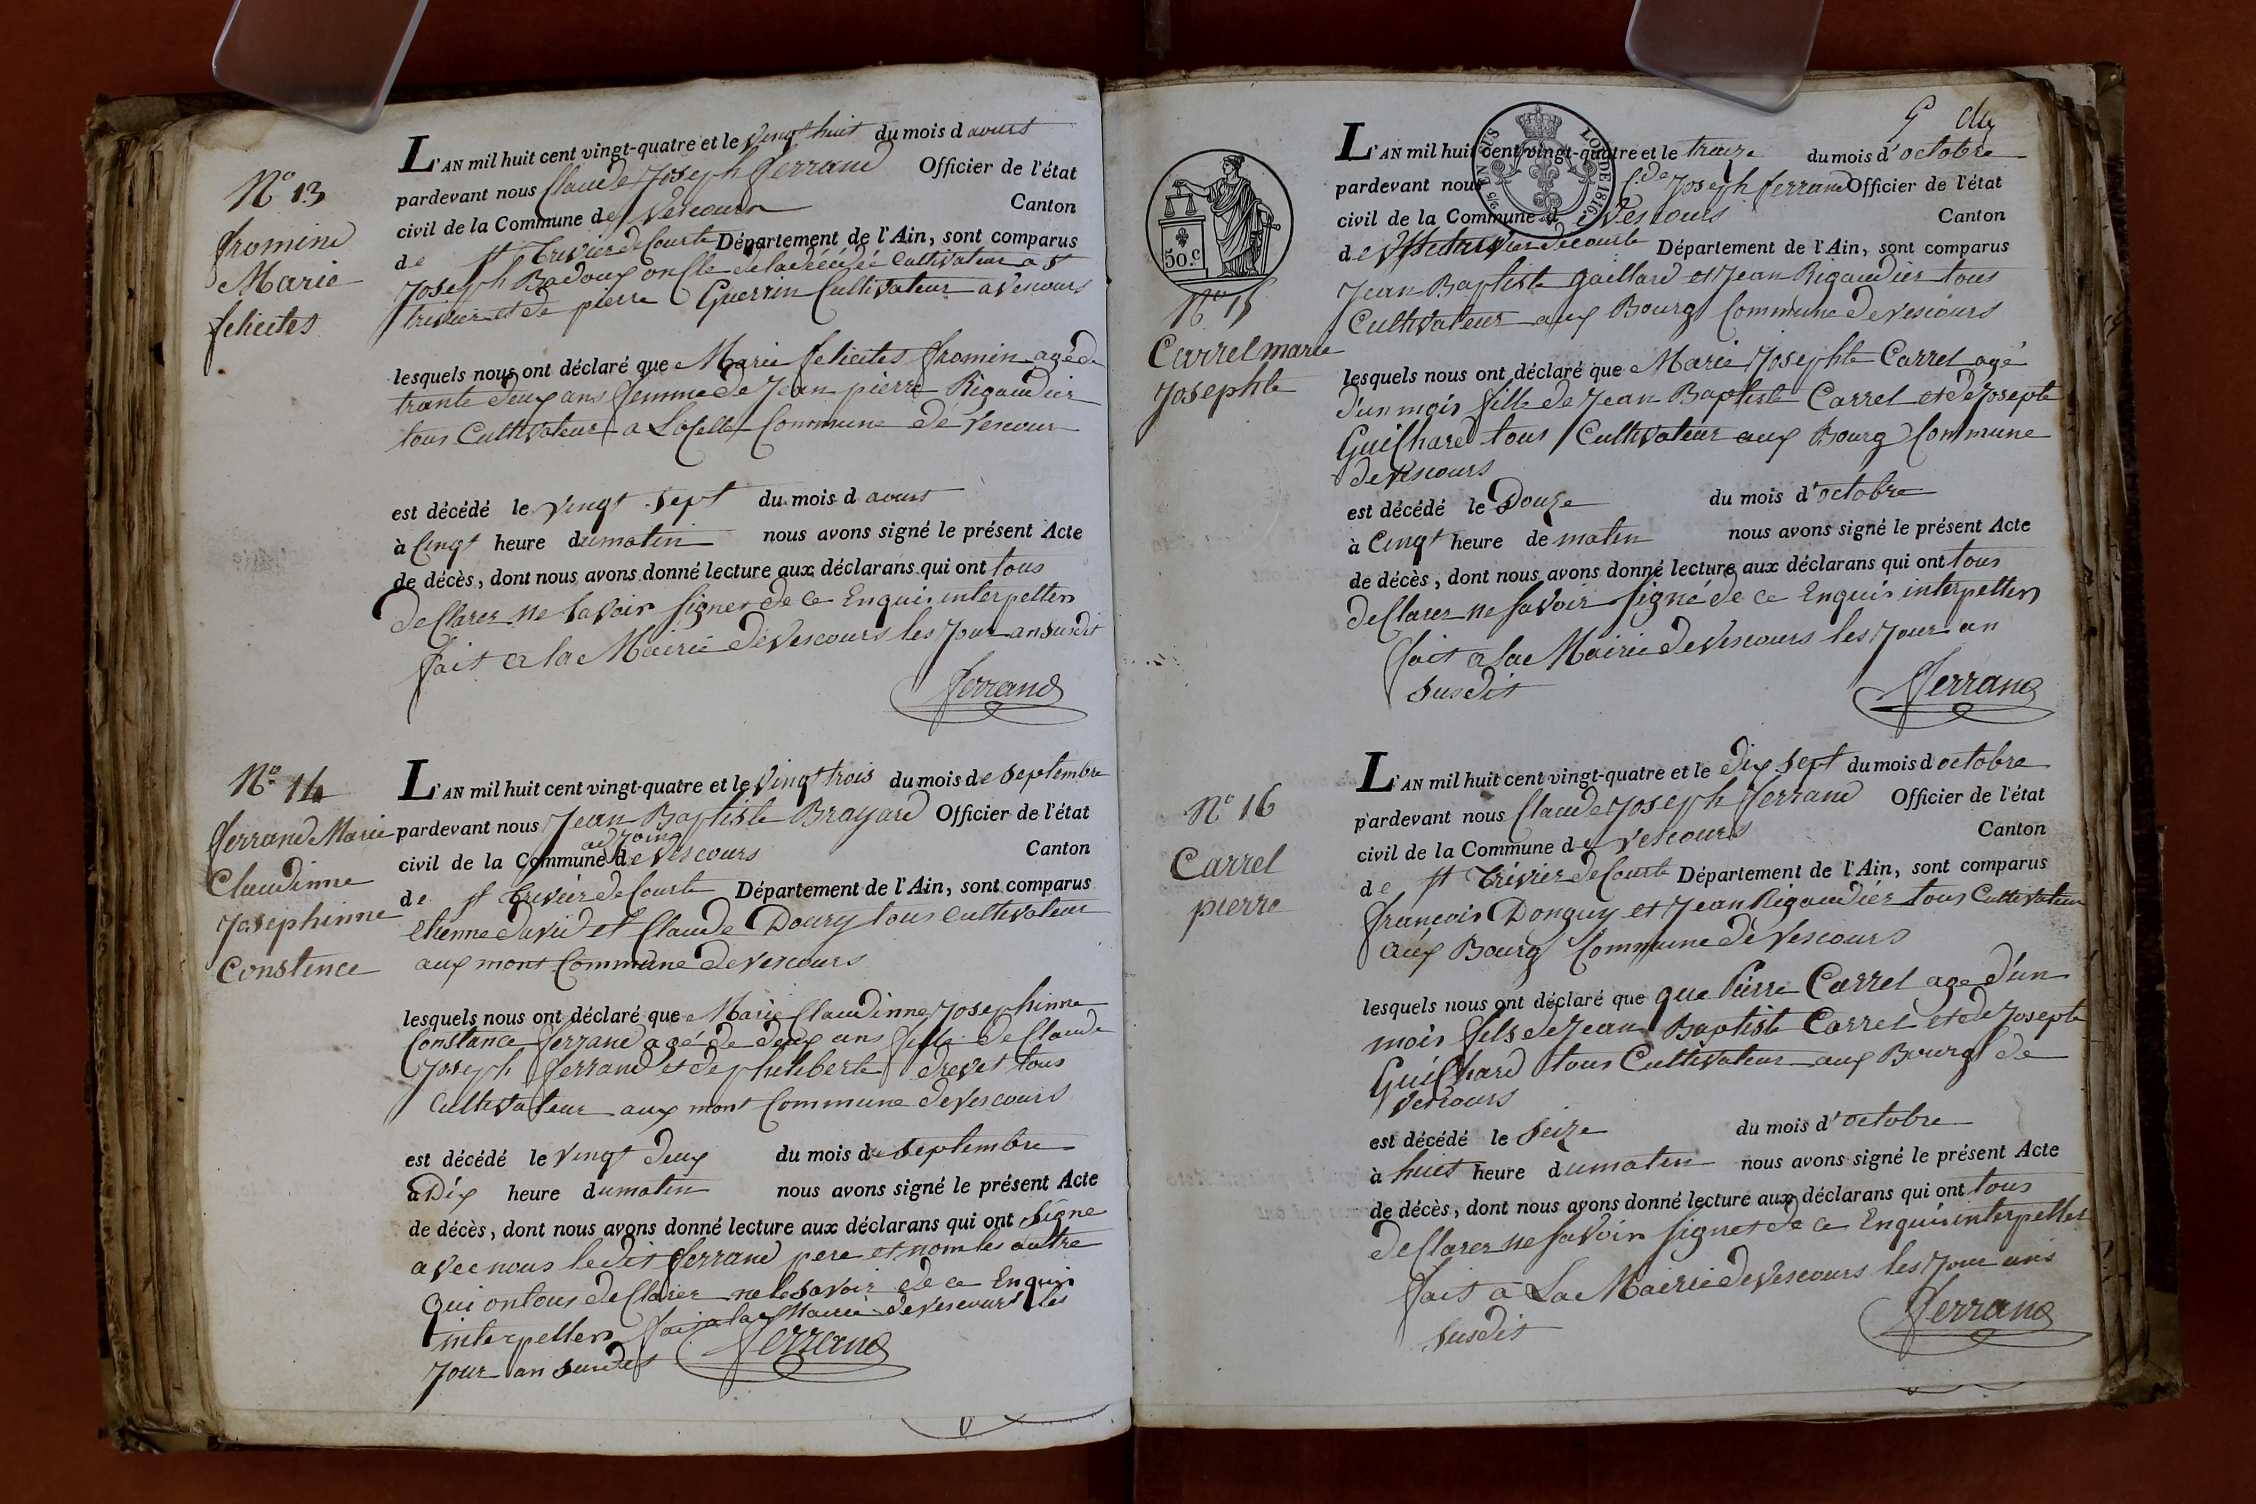 N° 13
fromin
Marie
felicites
L'AN mil huit cent vingt-quatre et le vingt huit du mois d aoust
pardevant nous Claude Joseph ferrand Officier de l'état
civil de la Commune de Vescours Canton
de st trivier de Courte Département de l'Ain, sont comparus
Joseph Badoux oncle de la décédé Cultivateur a st
trivier et de pierre Guerrin Cultivateur a Vescours
lesquels nous ont déclaré que Marie felicites fromin agé de
trante deux ans femme de Jean pierre Rigaudier
tous Cultivateur a Commune de Vescour
est décédé le vingt sept du mois d aoust
à Cinqt heure du matin nous avons signé le présent Acte
de décès, dont nous avons donné lecture aux déclarans qui ont tous
declarer ne savoir signer de ce Enquis interpeller
fait a la Mairie de Vescours les Jour an susdit
ferrand
N° 14
ferrand Marie
Claudinne
Josephinne
Constence
L'AN mil huit cent vingt-quatre et le vingt trois du mois de septembre
pardevant nous Jean Baptiste Brayard Officier de l'état
adjoing
civil de la Commune de vescours Canton
de st trivier de Courte Département de l'Ain, sont comparus
etienne david et Claude Doury tous cultivateur
aux mont Commune de vescours
lesquels nous ont déclaré que Marie Claudinne Josephinne
Constance ferrand agé de deux ans fille de Claude
Joseph ferrand et de philiberte drevet tous
Cultivateur aux mont Commune de vescours
est décédé le vingt deux du mois de septembre
à Dix heure du matin nous avons signé le présent Acte
de décès, dont nous avons donné lecture aux déclarans qui ont signe
avec nous ledit ferrand pere et nom les autre
qui on tous declarer ne le savoir de ce Enquis
interpeller fait a la Mairie de vescours les
Jour an susdit ferrand
G du
EN SUS
LOI DE 1816
50.c
N° 15
Carrel marie
Josephte
L'AN mil huit cent vingt-quatre et le treize du mois d'octobre
pardevant nous C.de Joseph ferrand Officier de l'état
civil de la Commune d Vescours Canton
de st trivier de courte Département de l'Ain, sont comparus
Jean Baptiste gaillard et Jean Rigaudier tous
Cultivateur aux Bourg Commune de vescours
lesquels nous ont déclaré que Marie Josephte Carrel agé
d'un mois fille de Jean Baptiste Carrel et de Josepte
Guichard tous Cultivateur aux Bourg Commune
de vescours
est décédé le Douze du mois d'octobre
à Cinqt heure de matin nous avons signé le présent Acte
de décès, dont nous avons donné lecture aux déclarans qui ont tous
declarer ne savoir signé de ce Enquis interpeller
fait a la Mairie de vescours les Jour an
susdit
ferrand
N° 16
Carrel
pierre
L'AN mil huit cent vingt-quatre et le dix sept du mois d octobre
pardevant nous Claude Joseph ferrand Officier de l'état
civil de la Commune de vescours Canton
de st trivier de Courte Département de l'Ain, sont comparus
francois Donguy et Jean Rigaudier tous Cultivateur
aux Bourg Commune de Vescours
lesquels nous ont déclaré que que Pierre Carrel age d'un
mois fils de Jean Baptiste Carrel et de Josepte
Guichard tous Cultivateur aux Bourg de
vescours
est décédé le seize du mois d'octobre
à huit heure du matin nous avons signé le présent Acte
de décès, dont nous avons donné lecture aux déclarans qui ont tous
declarer ne savoir signer de ce Enquis interpeller
fait a La Mairie de Vescours les Jour ans
susdit
ferrand